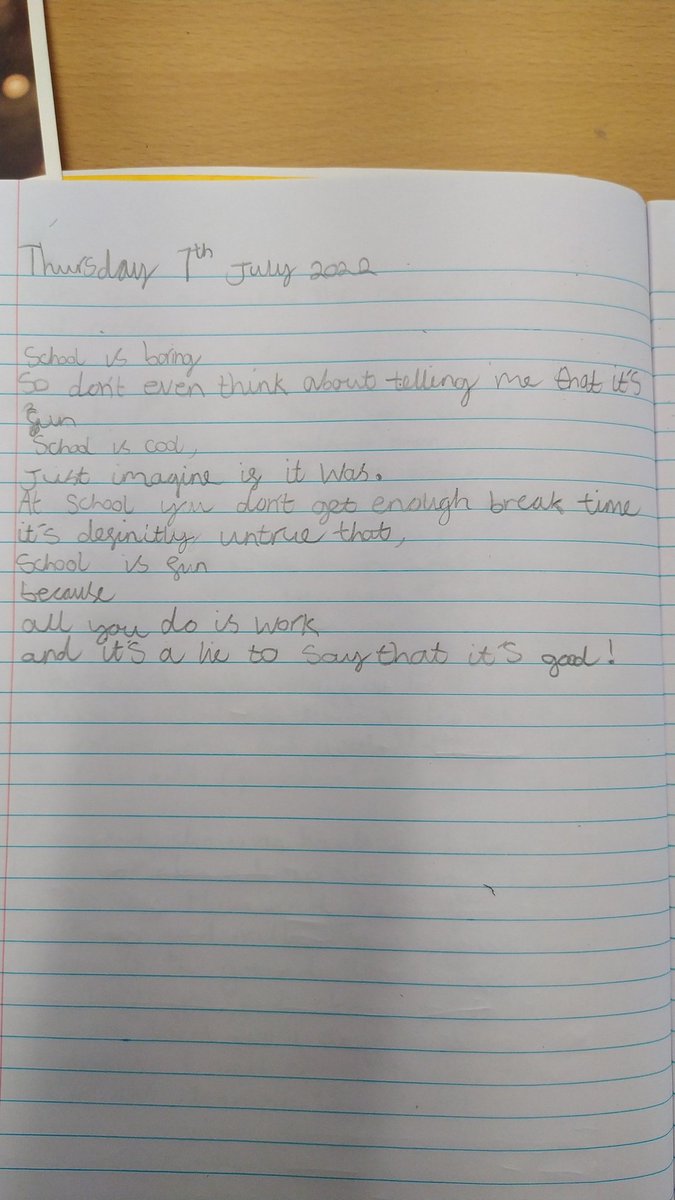 Thursday 7th July 2022
School is boring
So don't even think about telling me that it's
fun
School is cool,
Just imagine if it was.
At School you don't get enough break time
it's definitly untrue that,
School is fun
because
all you do is work
and it's a lie to say that it's good!